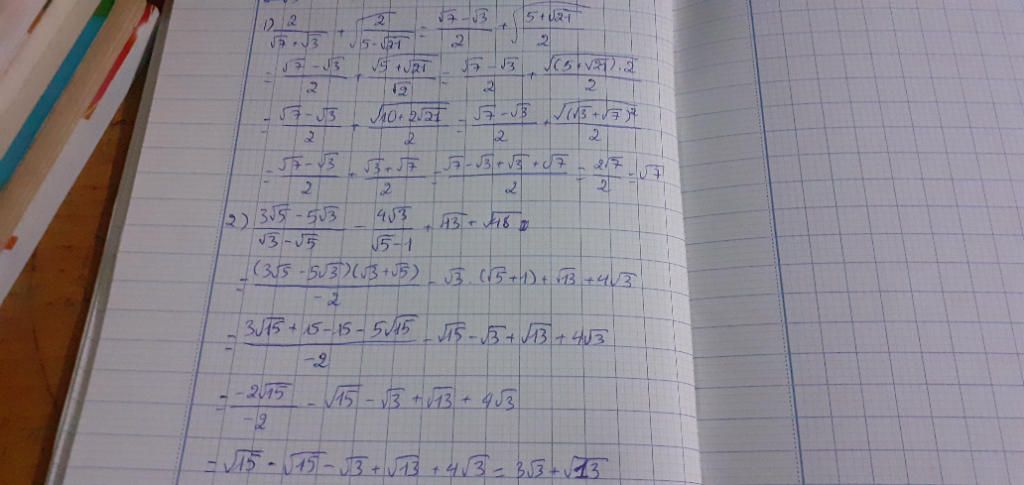 1) 2/(√7 + √3) + √(2/(5 - √21)) = (√7 - √3)/2 + √((5 + √21)/2)
= (√7 - √3)/2 + √(5 + √21)/√2 = (√7 - √3)/2 + √((5 + √21) . 2)/2
= (√7 - √3)/2 + √(10 + 2√21)/2 = (√7 - √3)/2 + √((√3 + √7)²)/2
= (√7 - √3)/2 + (√3 + √7)/2 = (√7 - √3 + √3 + √7)/2 = 2√7/2 = √7
2) (3√5 - 5√3)/(√3 - √5) - 4√3/(√5 - 1) + √13 + √48
= (3√5 - 5√3)(√3 + √5)/-2 - √3 . (√5 + 1) + √13 + 4√3
= (3√15 + 15 - 15 - 5√15)/-2 - √15 - √3 + √13 + 4√3
= -2√15/-2 - √15 - √3 + √13 + 4√3
= √15 - √15 - √3 + √13 + 4√3 = 3√3 + √13